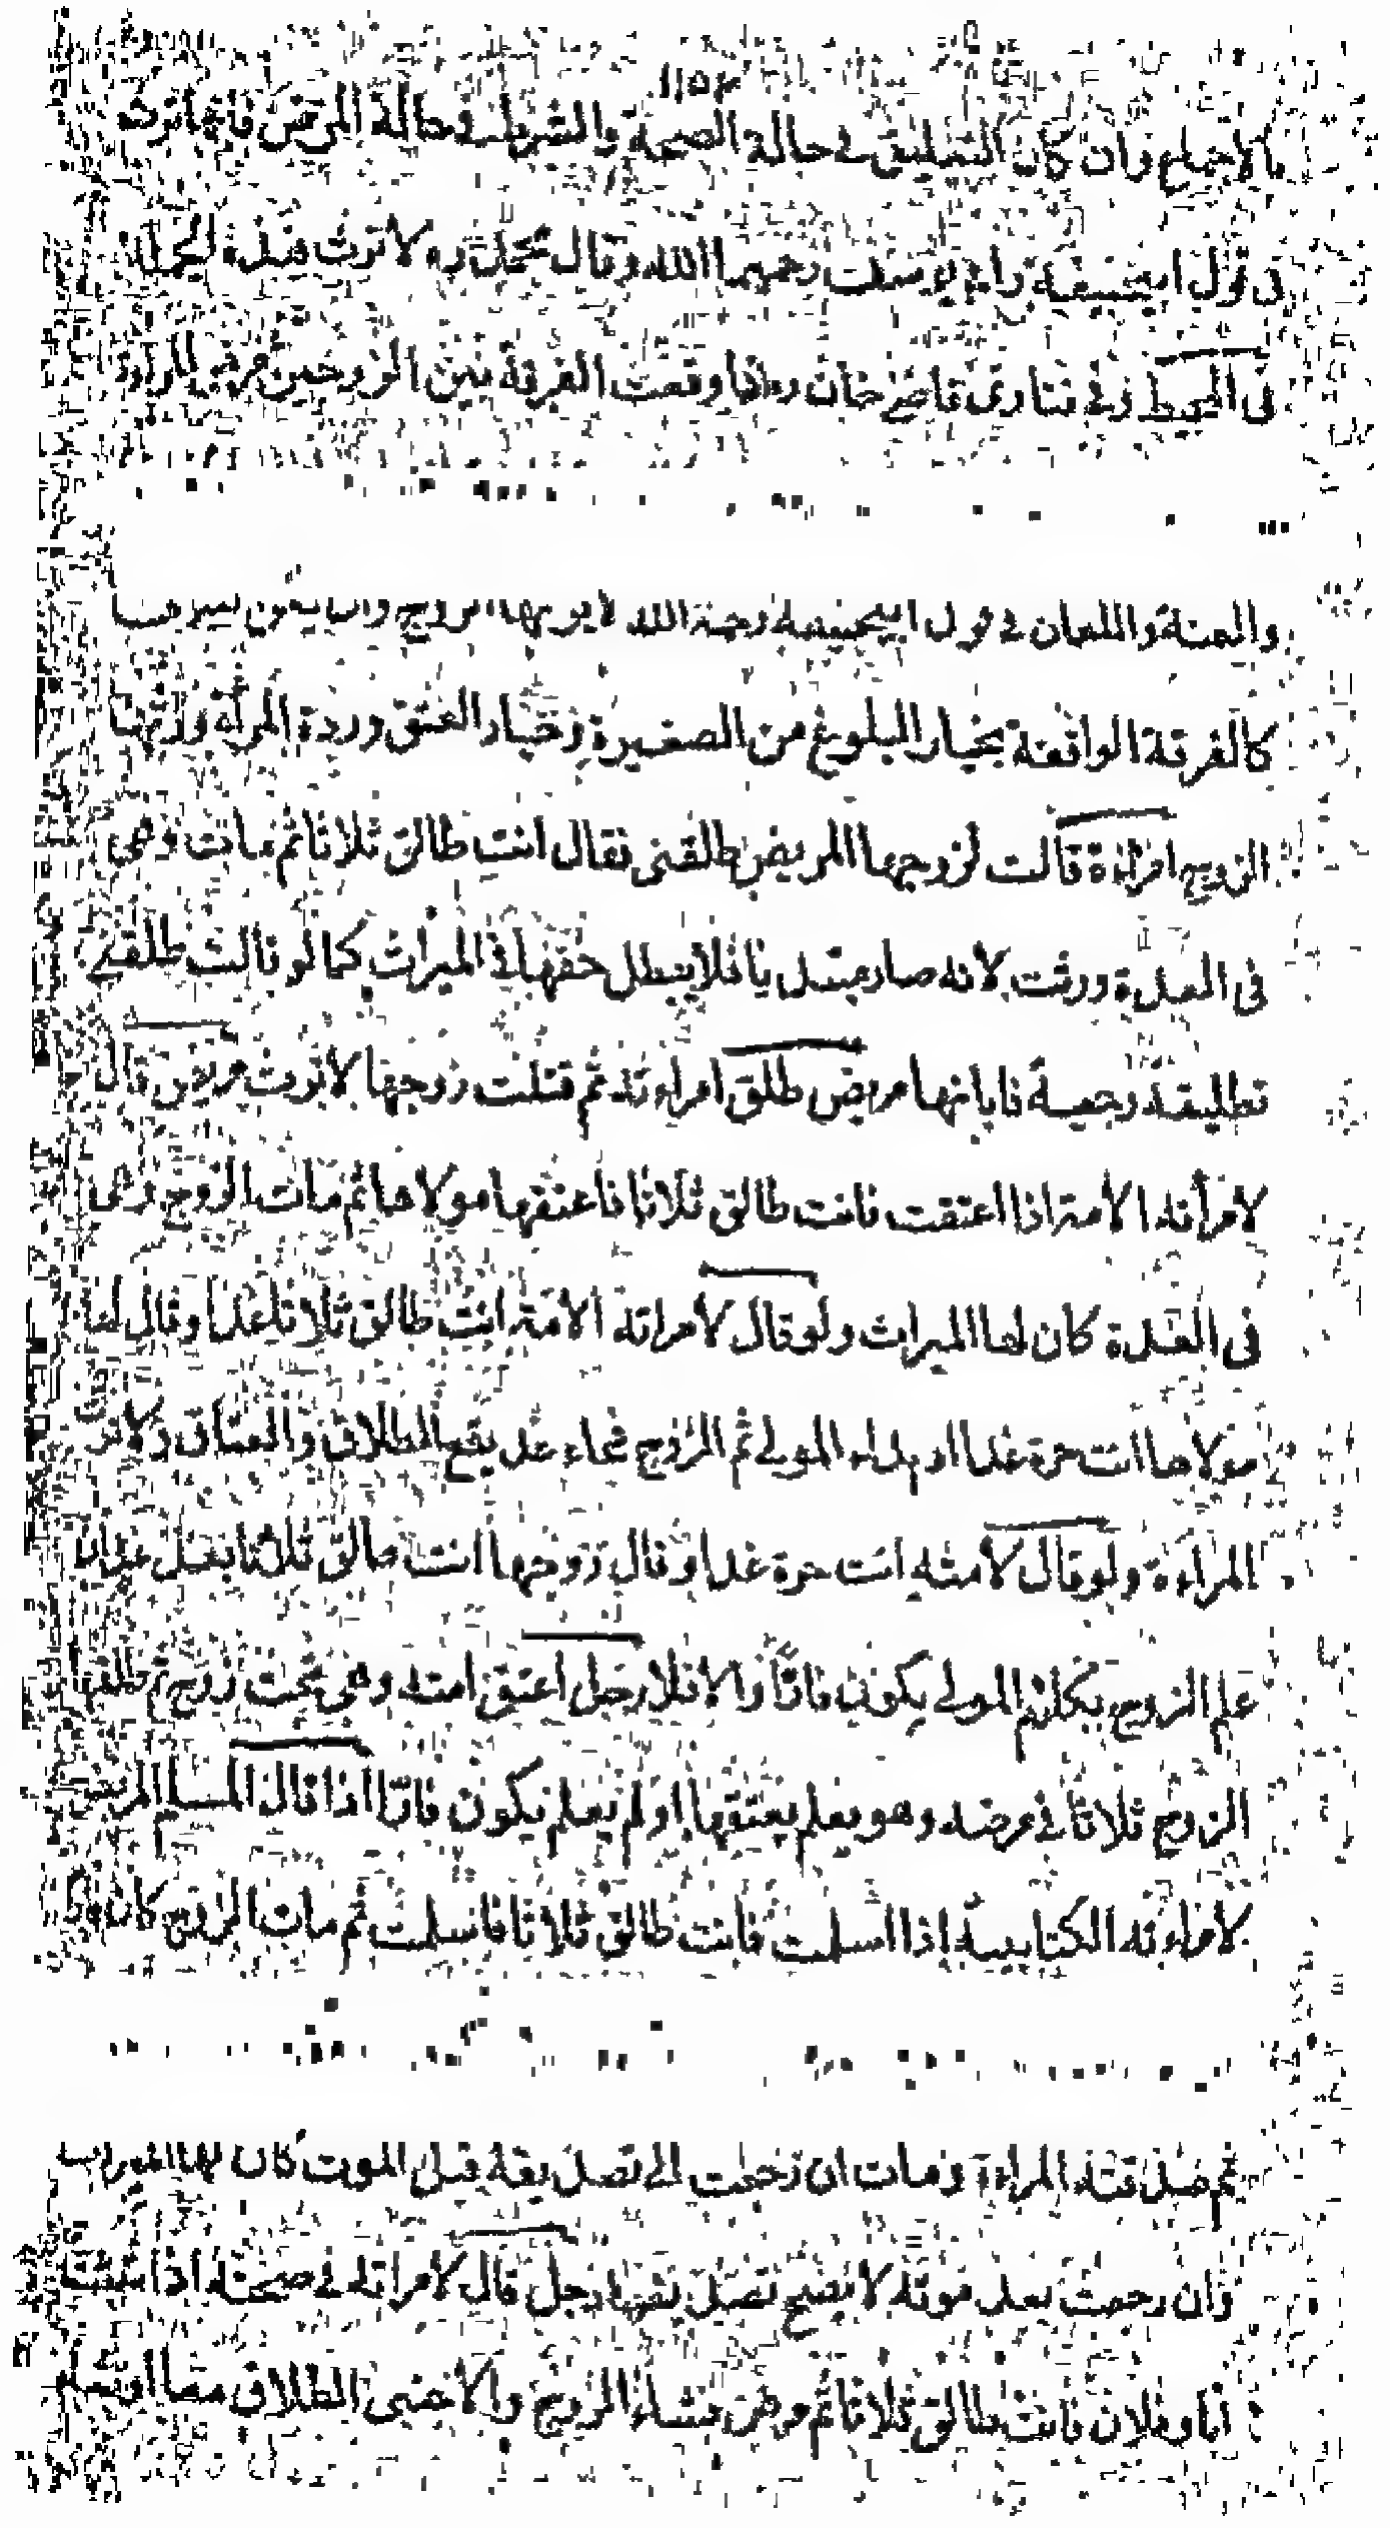 ١١٥٣
بالاجماع وان كان التعليق في حالة الصحة والشرط في حالة المرض فانها ترثه
في قول ابيحنيفة وابي يوسف رحمهما الله وقال محمد ره لا ترث
في المحيط وفي فتاوى قاضي خان ره اذا وقعت الفرقة بين الزوجين
والعنة واللعان في قول ابيحنيفة رحمة الله لا يرثها الزوج وان
كالفرقة الواقعة بخيار البلوغ من الصغيرة وخيار العتق وردة المراة ورثها
الزوج امراءة قالت لزوجها المريض طلقنى فقال انت طالق ثلاثا ثم مات وهى
فى العدة ورثت لانه صار مبتديا فلا يبطل حقها في الميراث كما لو قالت طلقني
تطليقة رجعية فابانها مريض طلق امراءته ثم قتلت زوجها لا ترث مريض قال
لامرأته الامة اذا اعتقت فانت طالق ثلاثا فاعتقها مولاها ثم مات الزوج وهى
فى العدة كان لها الميراث ولو قال لامراته الامة انت طالق ثلاثا غدا وقال لها
مولاها انت حرة غدا او بداء المولى ثم الزوج فجاء غد يقع الطلاق والعتاق ولا ترث
المراءة ولو قال لامته انت حرة غدا وقال زوجها انت طالق ثلاثا بعد غد ان
علم الزوج بكلام المولى يكون فارّا والا فلا رجل اعتق امته وهى تحت زوج ثم طلقها
الزوج ثلاثا في مرضه وهو يعلم بعتقها او لم يعلم يكون فارّا اذا قال المسلم المريض
لامراءته الكتابية اذا اسلمت فانت طالق ثلاثا فاسلمت ثم مات الزوج كان
ثم صدقته المراءة ومات ان رجعت الى تصديقه قبل الموت كان لها الميراث
وان رجعت بعد موته لا يصح تصديقها رجل قال لامراته في صحته اذا شئت
انا وفلان فانت طالق ثلاثا ثم مرض فشاء الزوج والاجنبى الطلاق معا او شاء